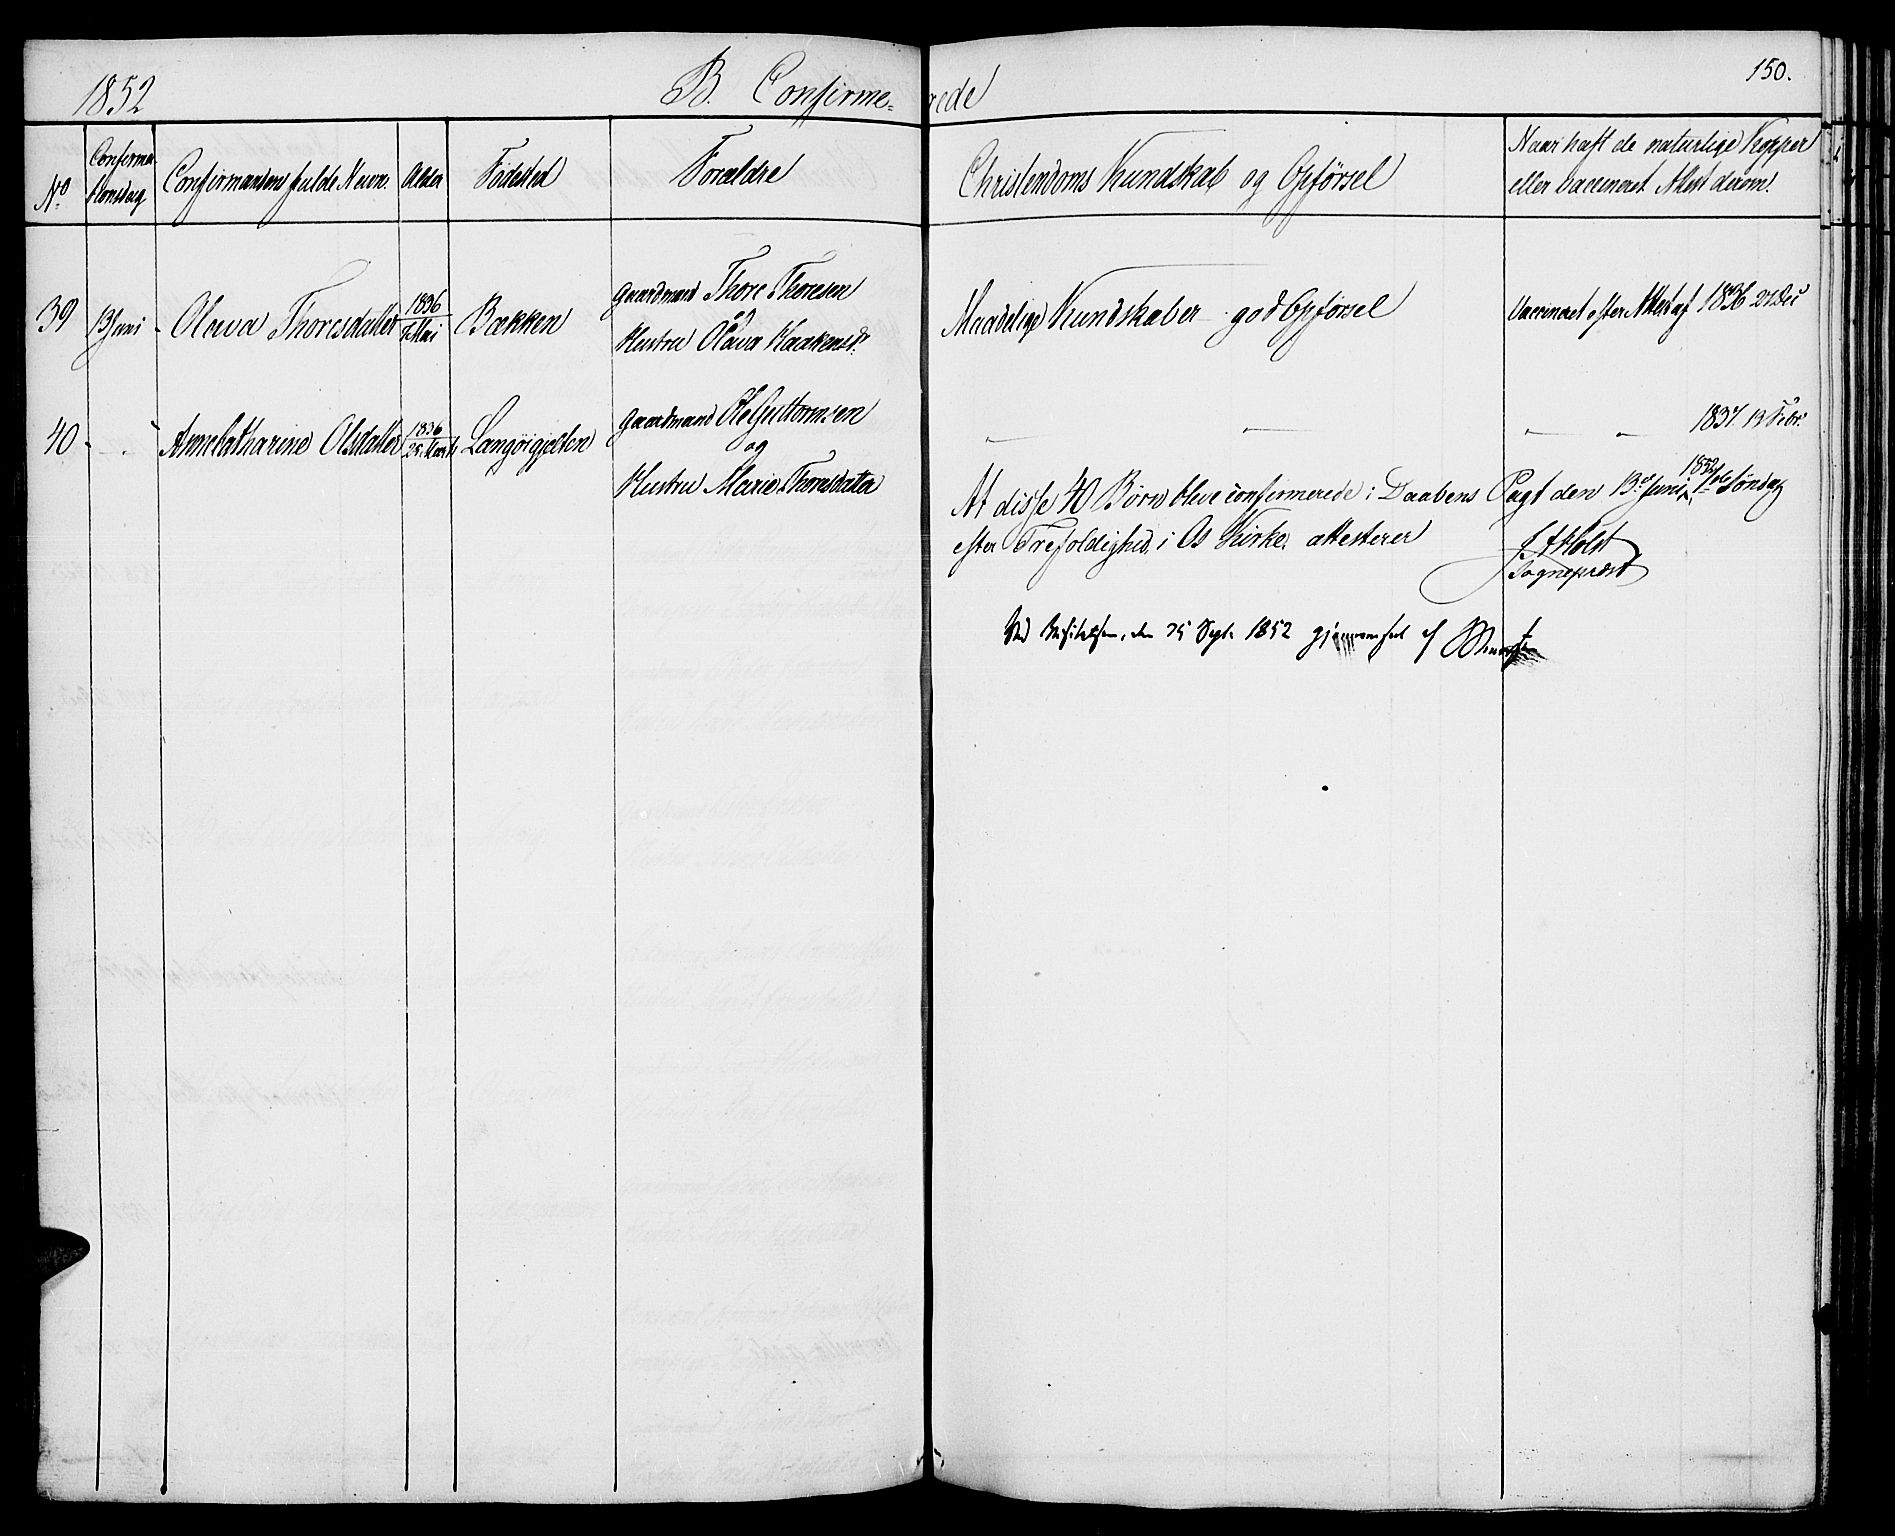 1852
B. Confirme=
rede
150.
No
Confirma
tionsdag
Confirmandens fulde Navn.
Alder
Fødested
Forældre
Christendoms Kundskab og Opførsel
Naar haft de naturlige Kopper
eller vaccineret Attest derom.
39
13 Juni
Olava Thoresdatter
1836
7 Mai
Bækken
Gaardmand Thore Thoresen
og
Hustru Olava Haakensdr.
Maadelige Kundskaber god Opførsel
Vaccineret efter Attest af 1836 27 Dec
40
Anne Catharine Olsdatter
1836
25 Marts
Langøigjelten
Gaardmand Ole Guttormsen
og
Hustru Marie Thoresdatter
1837. 13 Febr.
At disse 40 Børn bleve confirmerede i Daabens Pagt den 13de Juni 1852 1ste Søndag
efter Trefoldighed i Os Kirke, attesterer
Holst
Sognepræst
Ved Visitatsen, den 25 Sept. 1852 gjennemseet af